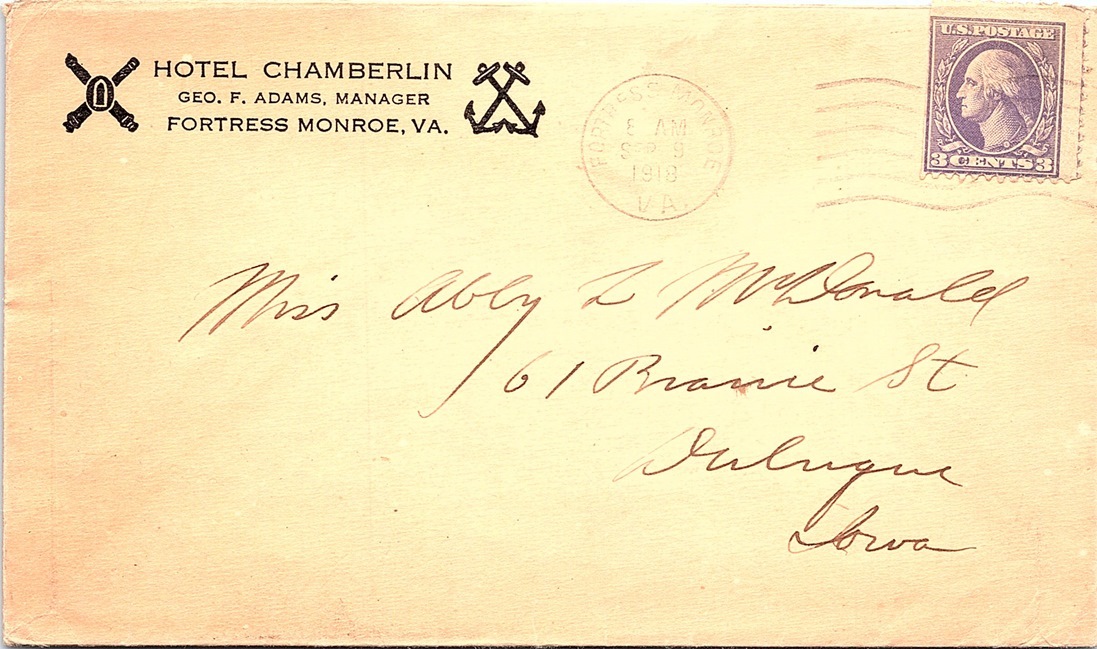 HOTEL CHAMBERLIN
GEO. F. ADAMS, MANAGER
FORTRESS MONROE, VA.
FORTRESS MONROE
8 AM
SEP 9
1918
VA.
U.S. POSTAGE
3 CENTS 3
Miss Abby L McDonald
61 Prairie St
Dubuque
Iowa